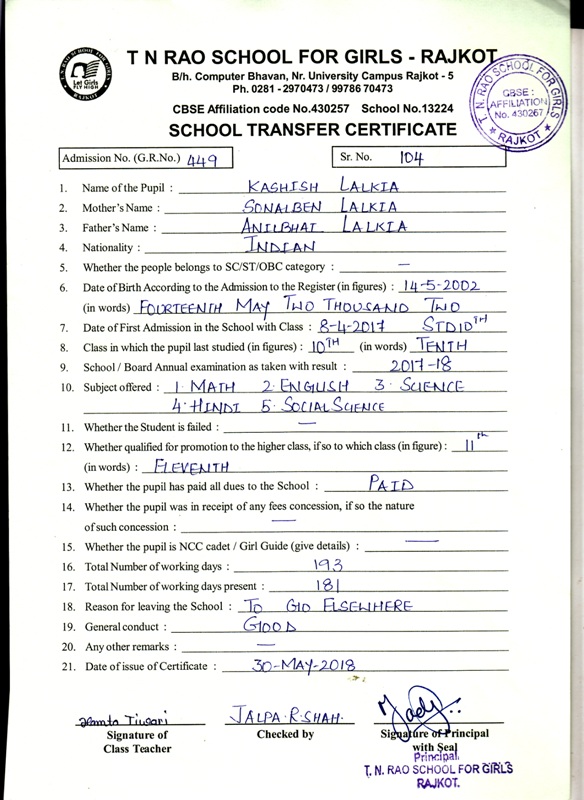 T N RAO SCHOOL FOR GIRLS
Let Girls
FLY HIGH
RAJKOT
T N RAO SCHOOL FOR GIRLS - RAJKOT
B/h. Computer Bhavan, Nr. University Campus Rajkot - 5
Ph. 0281 - 2970473 / 99786 70473
CBSE Affiliation code No.430257 School No.13224
SCHOOL TRANSFER CERTIFICATE
T. N. RAO SCHOOL FOR GIRLS
CBSE :
AFFILIATION
No. 430267
★ RAJKOT ★
Admission No. (G.R.No.) 449 Sr. No. 104
1. Name of the Pupil : KASHISH LALKIA
2. Mother's Name : SONALBEN LALKIA
3. Father's Name : ANILBHAI LALKIA
4. Nationality : INDIAN
5. Whether the people belongs to SC/ST/OBC category : —
6. Date of Birth According to the Admission to the Register (in figures) : 14-5-2002
(in words) FOURTEENTH MAY TWO THOUSAND TWO
7. Date of First Admission in the School with Class : 8-4-2017 STD10TH
8. Class in which the pupil last studied (in figures) : 10TH (in words) TENTH
9. School / Board Annual examination as taken with result : 2017-18
10. Subject offered : 1. MATH 2. ENGLISH 3. SCIENCE
4. HINDI 5. SOCIAL SCIENCE
11. Whether the Student is failed : —
12. Whether qualified for promotion to the higher class, if so to which class (in figure) : 11th
(in words) : ELEVENTH
13. Whether the pupil has paid all dues to the School : PAID
14. Whether the pupil was in receipt of any fees concession, if so the nature
of such concession : —
15. Whether the pupil is NCC cadet / Girl Guide (give details) : —
16. Total Number of working days : 193
17. Total Number of working days present : 181
18. Reason for leaving the School : TO GO ELSEWHERE
19. General conduct : GOOD
20. Any other remarks : —
21. Date of issue of Certificate : 30-MAY-2018
Tiwari JALPA.R.SHAH.
Signature of Class Teacher
Checked by
Signature of Principal
with Seal
Principal,
T. N. RAO SCHOOL FOR GIRLS
RAJKOT.